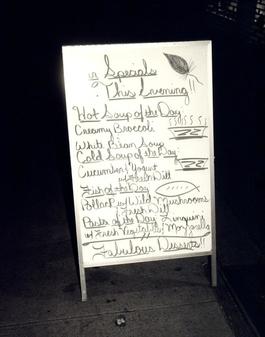 Specials
This Evening!!
Hot Soup of the Day
Creamy Broccoli
White Bean Soup
Cold Soup of the Day:
Cucumber Yogurt
w/ Fresh Dill
Fish of the Day
Pollack w/ Wild Mushrooms
Fresh Dill
Pasta of the Day Linguini
w/ Fresh Vegetables, Mozzarella
Fabulous Desserts!!